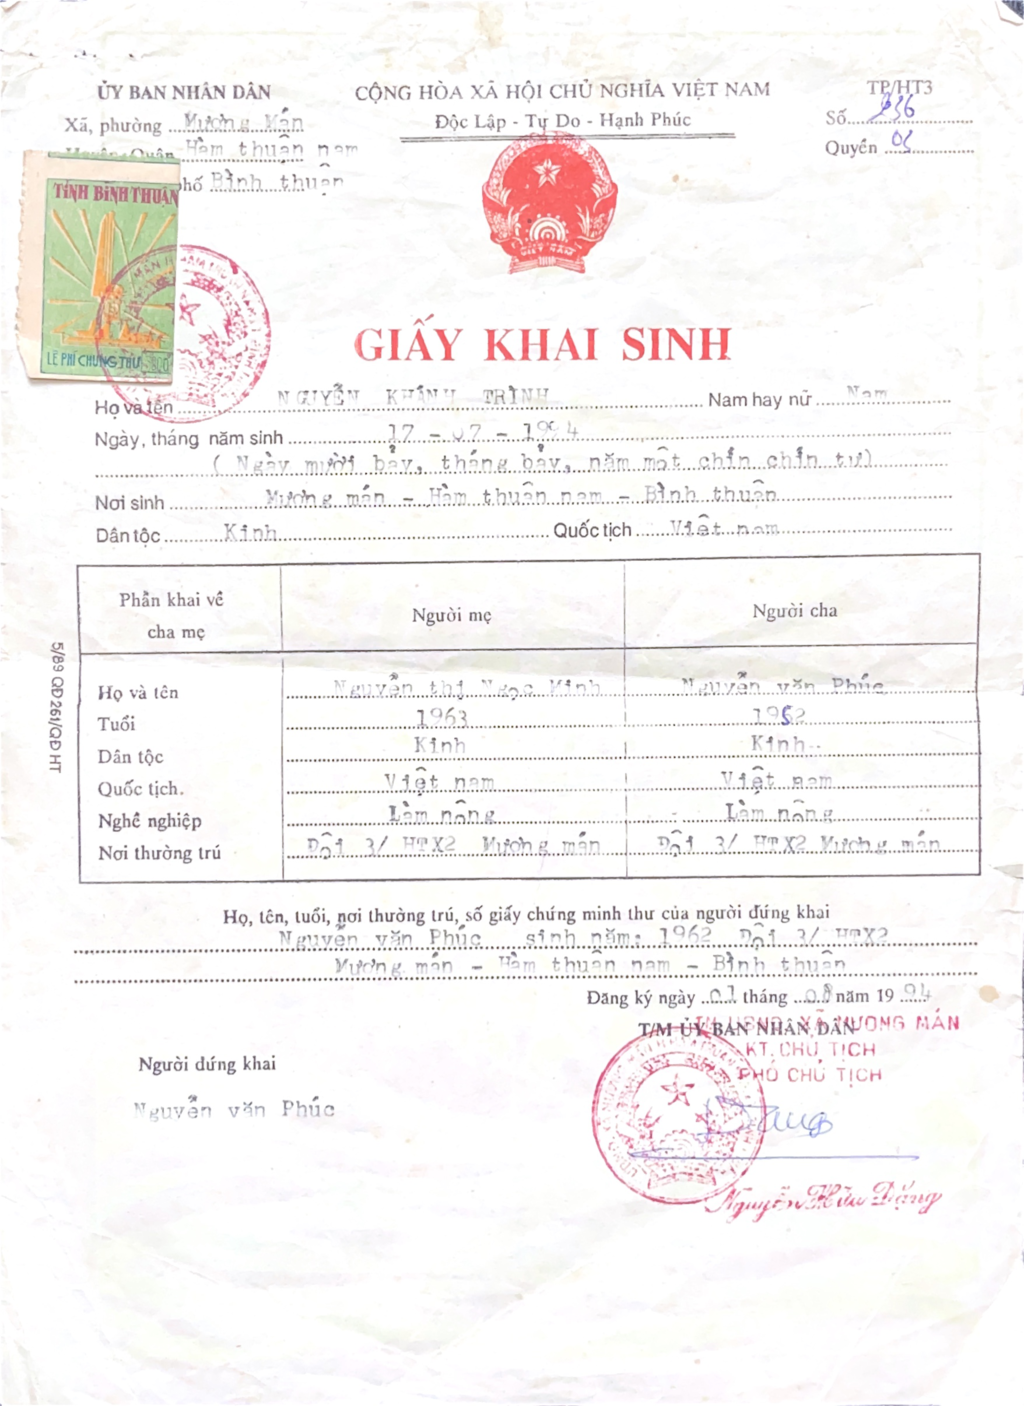 ỦY BAN NHÂN DÂN
Xã, phường Mương Mán
Hàm thuận nam
phố Bình thuận
CỘNG HÒA XÃ HỘI CHỦ NGHĨA VIỆT NAM
Độc Lập - Tự Do - Hạnh Phúc
TP/HT3
Số 236
Quyển 01
TỈNH BÌNH THUẬN
LỆ PHÍ CHỨNG THƯ
VIỆT NAM
GIẤY KHAI SINH
Họ và tên NGUYỄN KHÁNH TRÌNH Nam hay nữ Nam
Ngày, tháng năm sinh 17 - 07 - 1994
( Ngày mười bảy, tháng bảy, năm một chín chín tư)
Nơi sinh Mương mán - Hàm thuận nam - Bình thuận
Dân tộc Kinh Quốc tịch Việt nam
Phần khai về cha mẹ Người mẹ Người cha
Họ và tên Nguyễn thị Ngọc Minh Nguyễn văn Phúc
Tuổi 1963 1962
Dân tộc Kinh Kinh
Quốc tịch. Việt nam Việt nam
Nghề nghiệp Làm nông Làm nông
Nơi thường trú Đội 3/ HTX2 Mương mán Đội 3/ HTX2 Mương mán
5/89 QĐ261/QĐ HT
Họ, tên, tuổi, nơi thường trú, số giấy chứng minh thư của người đứng khai
Nguyễn văn Phúc sinh năm: 1962 Đội 3/ HTX2
Mương mán - Hàm thuận nam - Bình thuận
Đăng ký ngày 01 tháng 08 năm 1994
T/M ỦY BAN NHÂN DÂN
TM UBND XÃ MƯƠNG MÁN
KT. CHỦ TỊCH
PHÓ CHỦ TỊCH
Người đứng khai
Nguyễn văn Phúc
Nguyễn Hữu Đặng